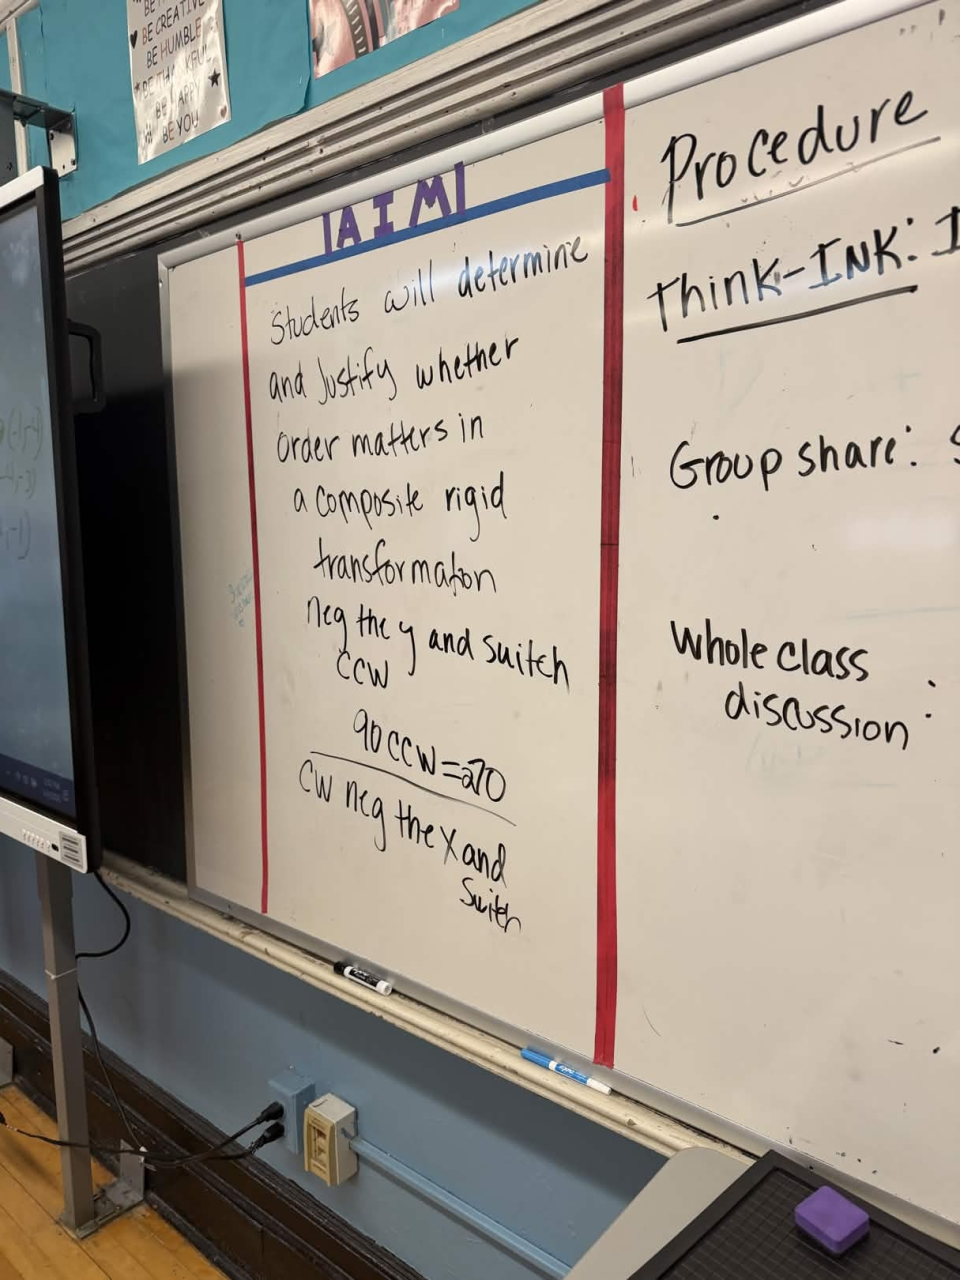 BE CREATIVE
BE HUMBLE
BE THANKFUL
BE HAPPY
BE YOU
AIM
Students will determine
and Justify whether
order matters in
a composite rigid
transformation
neg the y and suitch
CCW
90 CCW = 270
CW neg the x and
Suitch
Procedure
Think-INK: I
Group share: S
whole class
discussion: